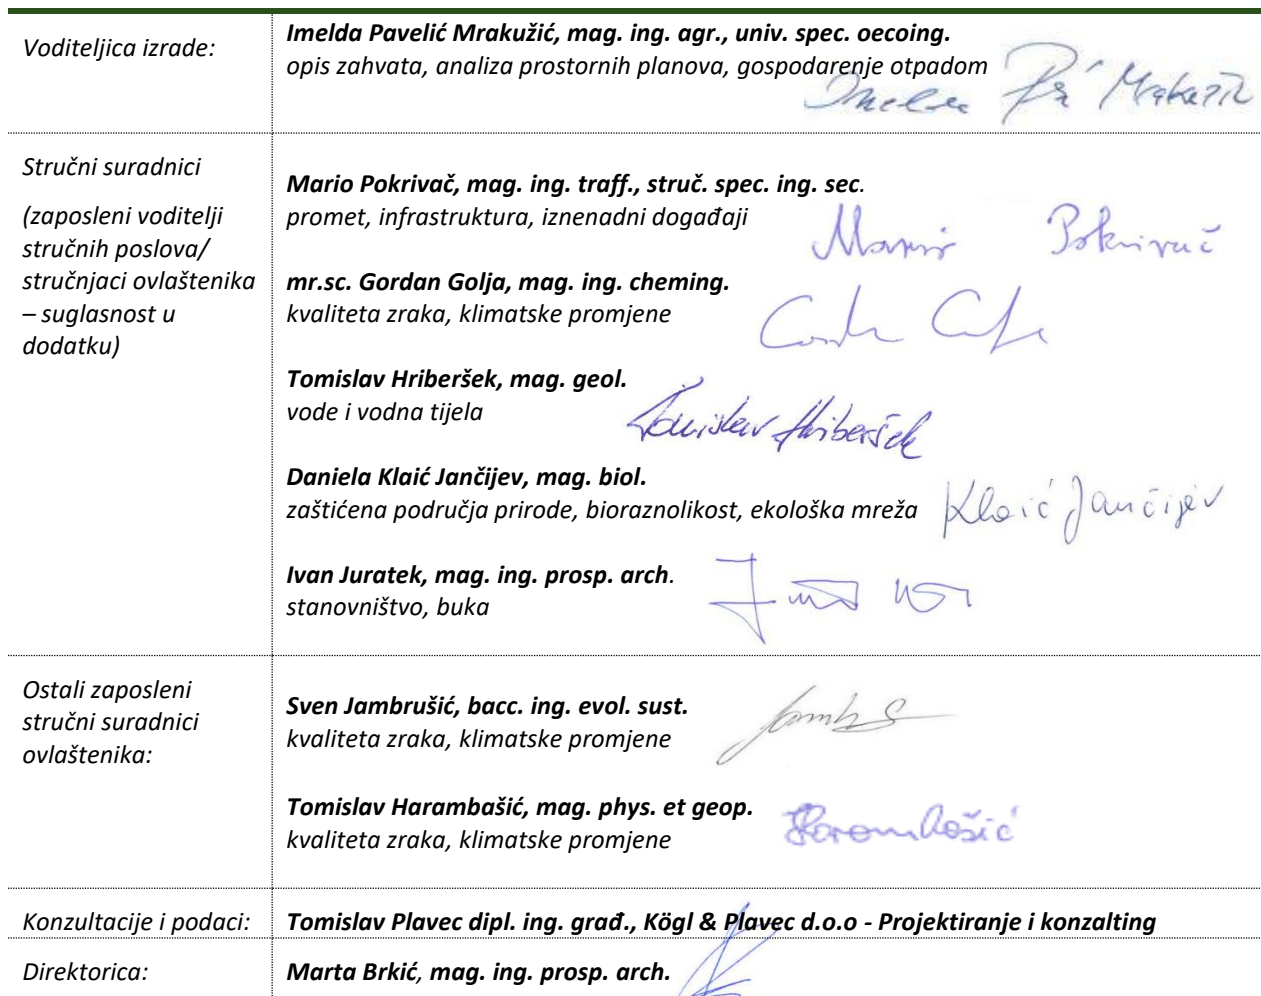 Voditeljica izrade:
Imelda Pavelić Mrakužić, mag. ing. agr., univ. spec. oecoing.
opis zahvata, analiza prostornih planova, gospodarenje otpadom
Stručni suradnici
(zaposleni voditelji
stručnih poslova/
stručnjaci ovlaštenika
– suglasnost u
dodatku)
Mario Pokrivač, mag. ing. traff., struč. spec. ing. sec.
promet, infrastruktura, iznenadni događaji
Mario Pokrivač
mr.sc. Gordan Golja, mag. ing. cheming.
kvaliteta zraka, klimatske promjene
Tomislav Hriberšek, mag. geol.
vode i vodna tijela
Tomislav Hriberšek
Daniela Klaić Jančijev, mag. biol.
zaštićena područja prirode, bioraznolikost, ekološka mreža
Klaić Jančijev
Ivan Juratek, mag. ing. prosp. arch.
stanovništvo, buka
Ostali zaposleni
stručni suradnici
ovlaštenika:
Sven Jambrušić, bacc. ing. evol. sust.
kvaliteta zraka, klimatske promjene
Tomislav Harambašić, mag. phys. et geop.
kvaliteta zraka, klimatske promjene
Harambašić
Konzultacije i podaci:
Tomislav Plavec dipl. ing. građ., Kögl & Plavec d.o.o - Projektiranje i konzalting
Direktorica:
Marta Brkić, mag. ing. prosp. arch.